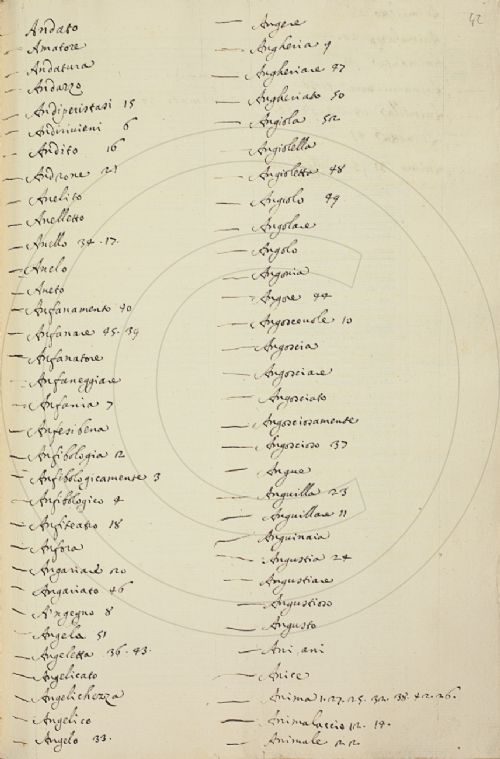 42
Andato
Amatore
Andatura
Andazzo
Andiperistasi 15
Andirivieni 6
Andito 16
Androne 21
Anelito
Anelletto
Anello 34. 17.
Anelo
Aneto
Anfanamento 40
Anfanare 45. 39
Anfanatore
Anfaneggiare
Anfania 7
Anfesibena
Anfibologia 12
Anfibologicamente 3
Anfibologico 4
Anfiteatro 18
Anfora
Angariare 20
Angariato 46
A'ngegno 8
Angela 51
Angeletta 36. 43.
Angelicato
Angelichezza
Angelico
Angelo 33.
Angere
Angheria 9
Angheriare 47
Angheriato 50
Angiola 52
Angiolella
Angioletta 48
Angiolo 49
Angolare
Angolo
Angonia
Angore 44
Angoscevole 10
Angoscia
Angosciare
Angosciato
Angosciosamente
Angoscioso 37
Angue
Anguilla 23
Anguillare 11
Anguinaia
Angustia 24
Angustiare
Angustioso
Angusto
Ani ani
Anice
Anima 1. 27. 25. 32. 38. 42. 26.
Animalaccio 12. 19.
Animale 22